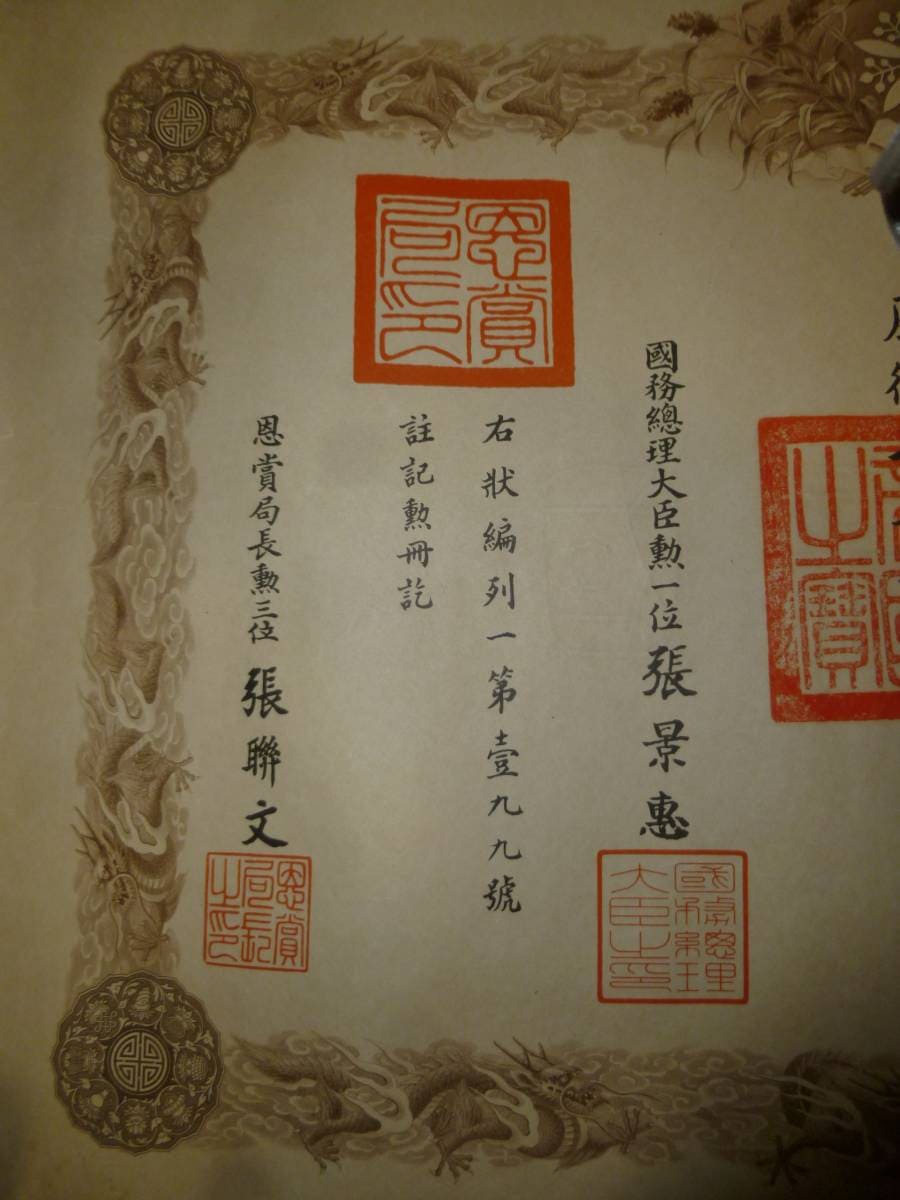 國務總理大臣勲一位張景惠
國務總理
大臣之印
右狀編列一第壹九九號
註記勲冊訖
恩賞
局印
恩賞局長勲三位張聯文
恩賞
局長
之印
之寶